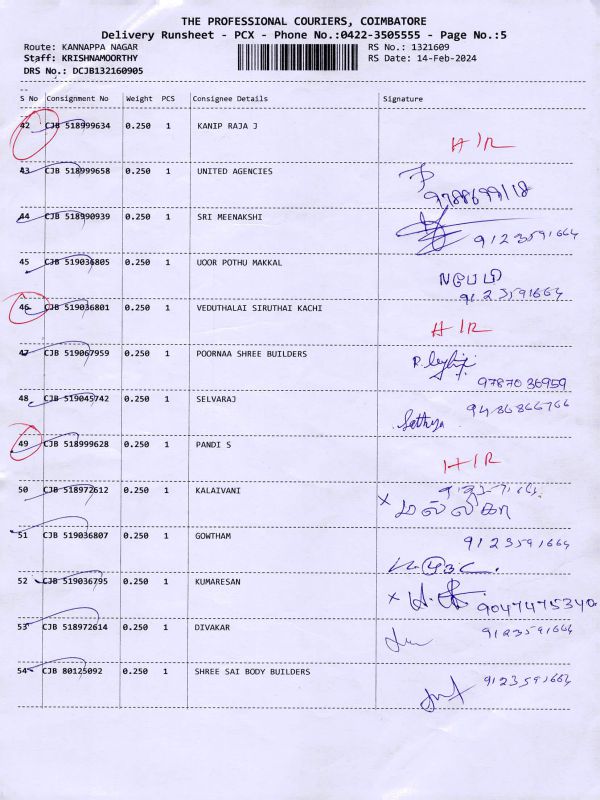 THE PROFESSIONAL COURIERS, COIMBATORE
Delivery Runsheet - PCX - Phone No.:0422-3505555 - Page No.:5
Route: KANNAPPA NAGAR RS No.: 1321609
Staff: KRISHNAMOORTHY RS Date: 14-Feb-2024
DRS No.: DCJB132160905
S No Consignment No Weight PCS Consignee Details Signature
42 CJB 518999634 0.250 1 KANIP RAJA J
H/R
43 CJB 518999658 0.250 1 UNITED AGENCIES
9788699118
44 CJB 518990939 0.250 1 SRI MEENAKSHI
9123591664
45 CJB 519036805 0.250 1 UOOR POTHU MAKKAL
9123591664
46 CJB 519036801 0.250 1 VEDUTHALAI SIRUTHAI KACHI
H/R
47 CJB 519067959 0.250 1 POORNAA SHREE BUILDERS
9787036959
48 CJB 519045742 0.250 1 SELVARAJ
Sathya 9486866766
49 CJB 518999628 0.250 1 PANDI S
H/R
50 CJB 518972612 0.250 1 KALAIVANI
x மல்லிகா
51 CJB 519036807 0.250 1 GOWTHAM
9123591664
52 CJB 519036795 0.250 1 KUMARESAN
x 9047475340
53 CJB 518972614 0.250 1 DIVAKAR
9123591664
54 CJB 80125092 0.250 1 SHREE SAI BODY BUILDERS
9123591664